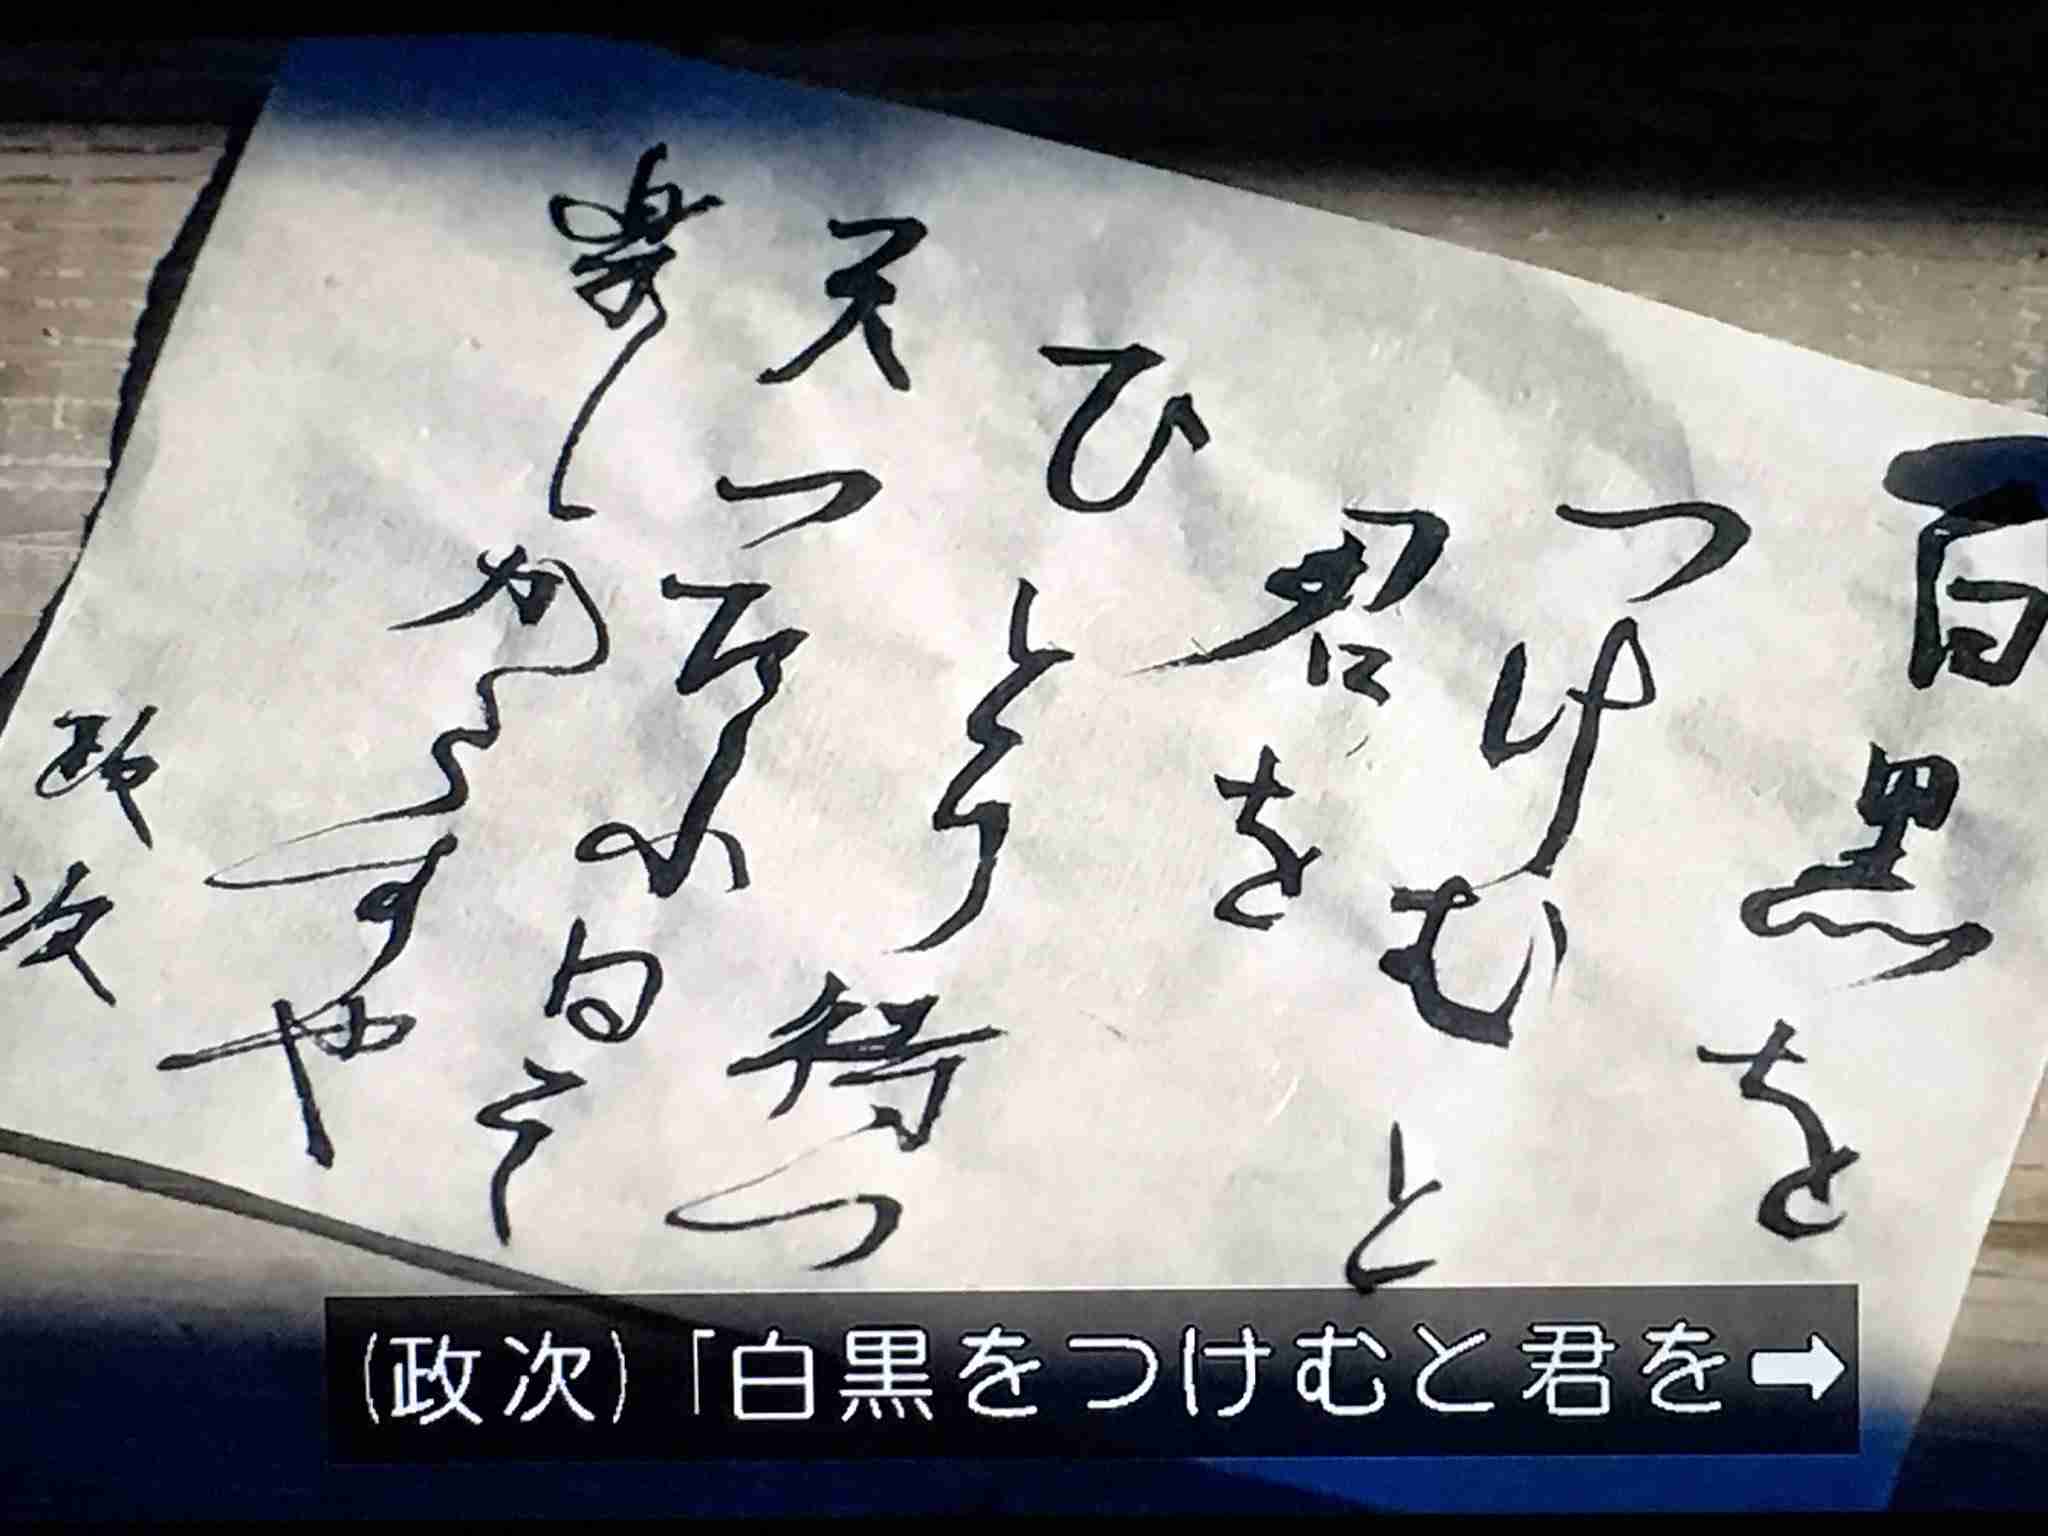 白黒を
つけむと
君を
ひとり待つ
天つたふ日そ
楽しからすや
政次
(政次)「白黒をつけむと君を➡